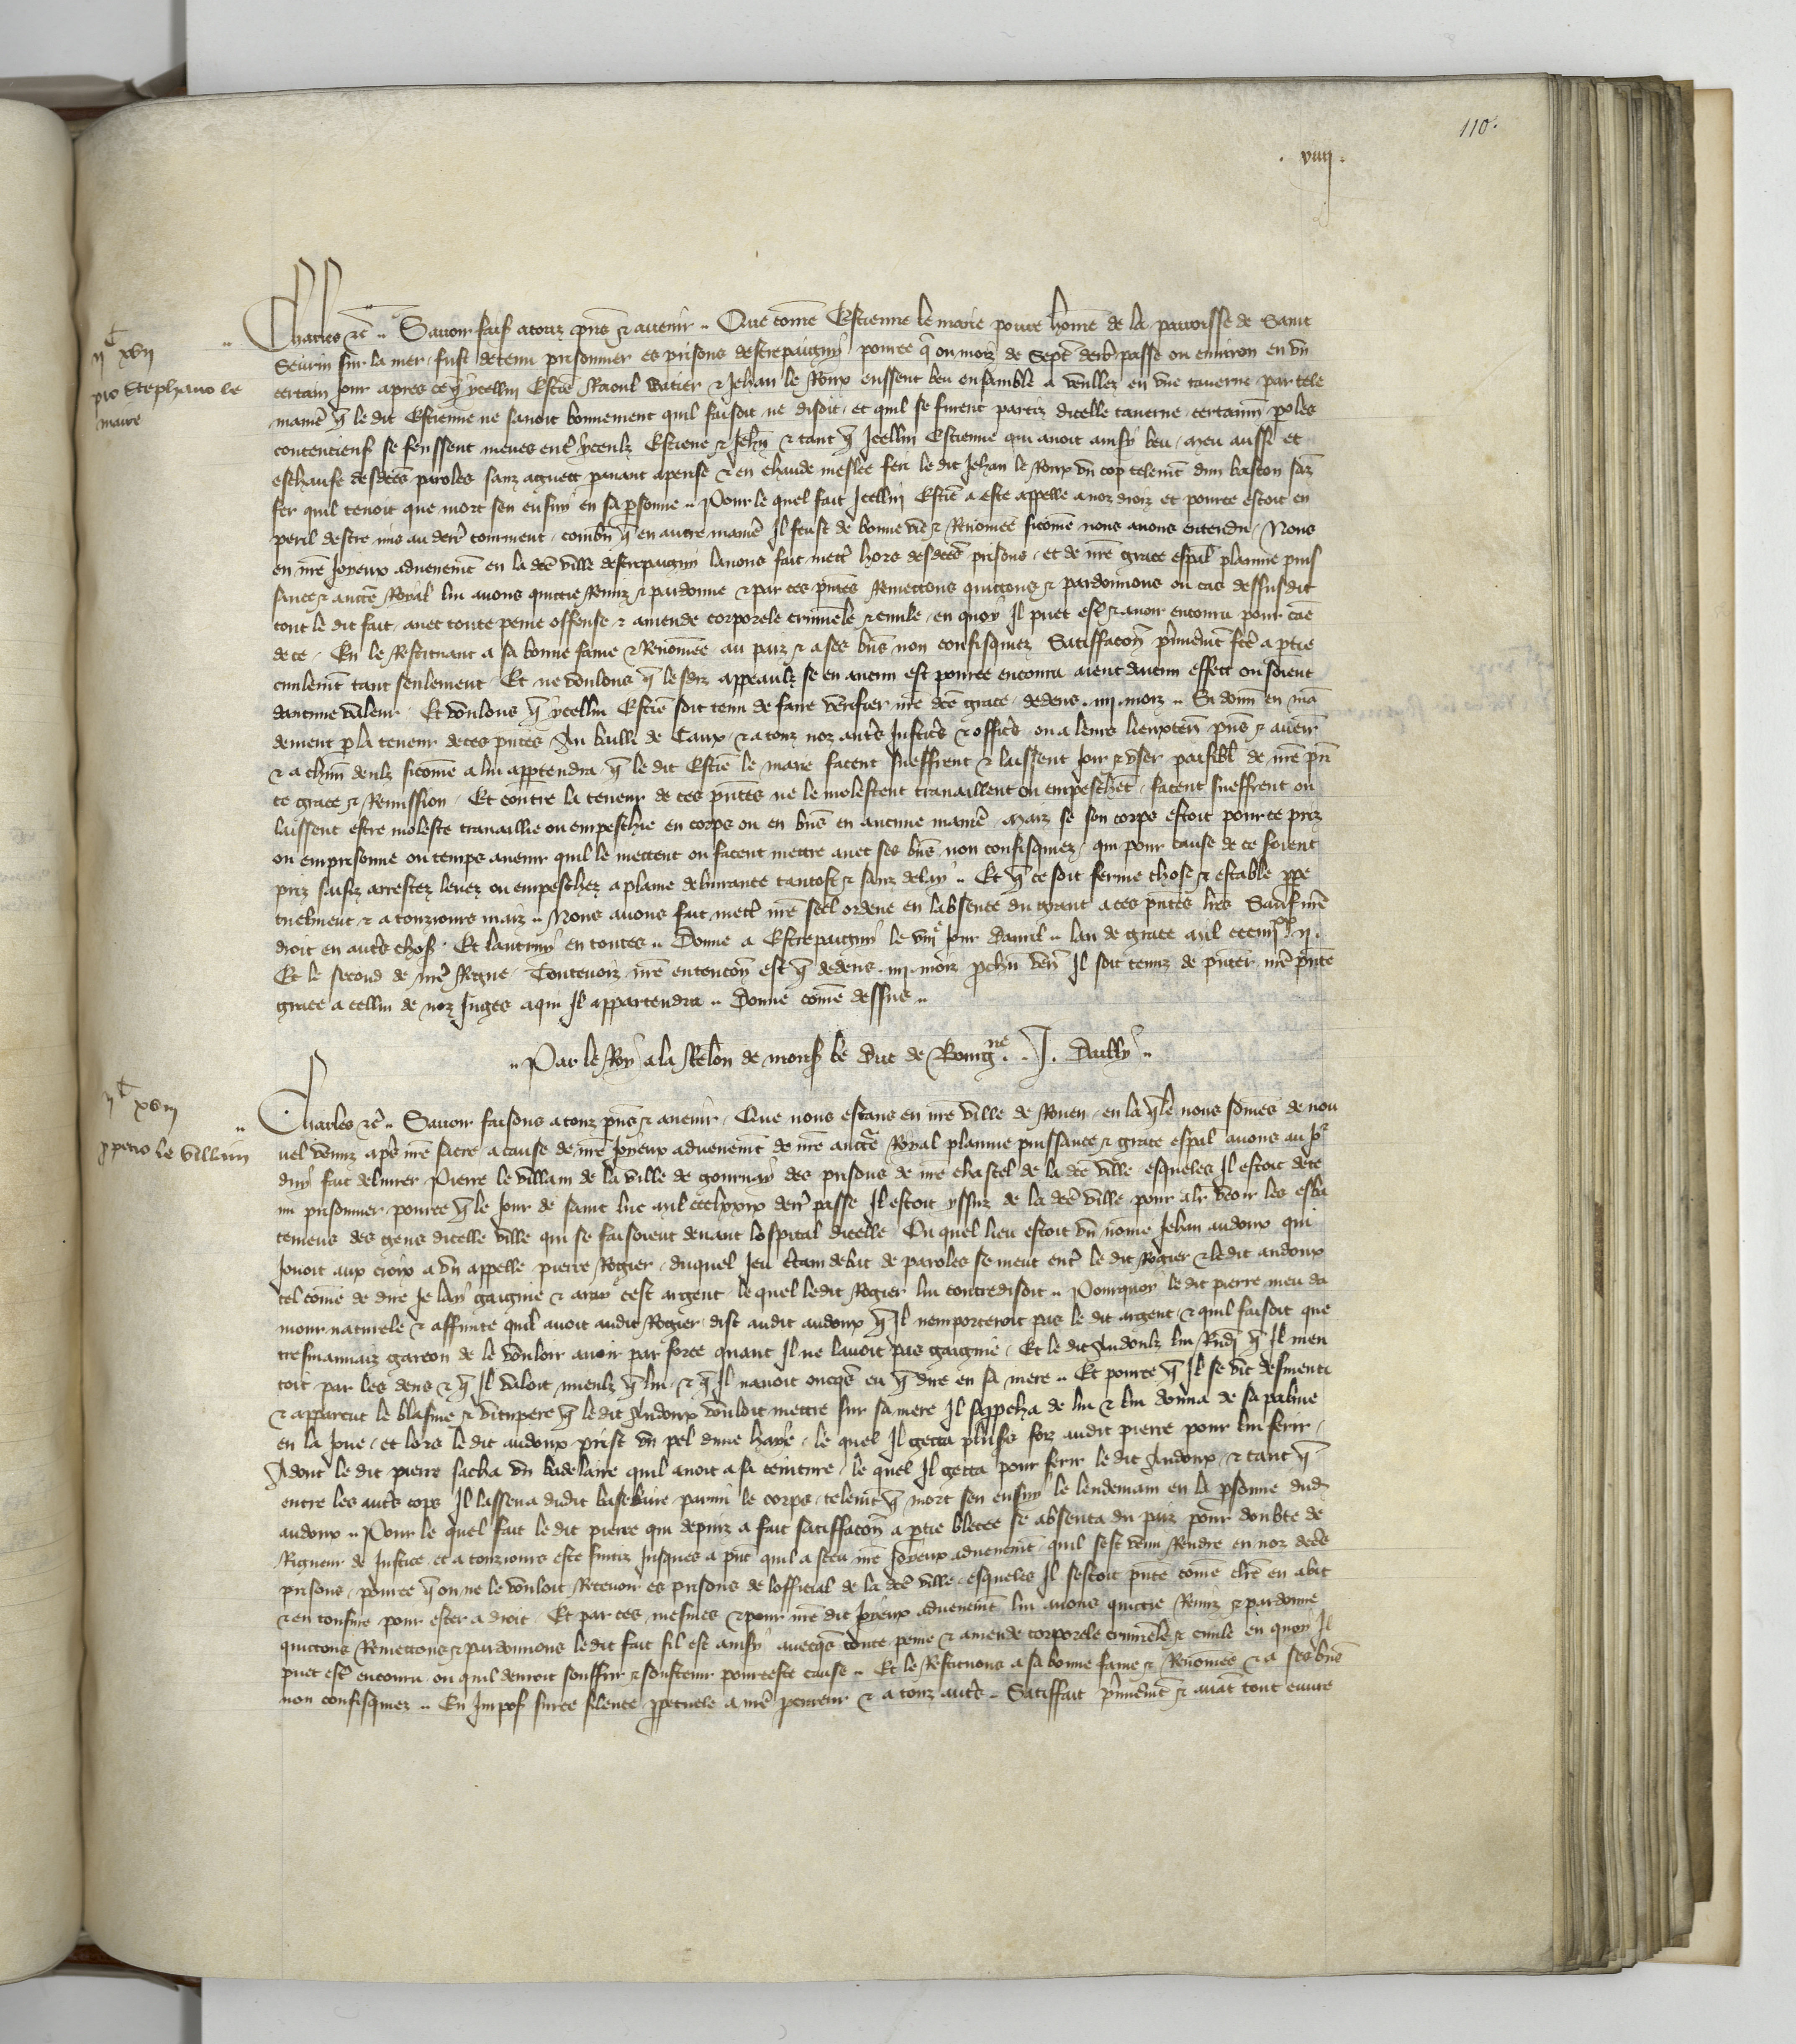 110.
. viiij .
ijᶜ xvij
pro Stephano le
maire
Charles etc̄ .. Savoir fais̄ a touz pn̄s et avenir .. Que cōme Estienne le maire povre hōme de la parroisse de Saint
Seurin sur la mer fust detenu prisonnier es prisons destrepaigny pource q̄ ou moiz de Sept̄ derr̄ passe ou environ en un
certain jour apres ce q̄ ycellui Estiē Raoul Watier et Jehan le Roux eussent beu ensamble a en une taverne par tele
maniē q̄ le dit Estienne ne savoit bonnement quil faisoit ne disoit et quil se furent partiz dicelle taverne certainn̄ poles
contencieus̄ se feussent meues ent̄ yceulz Estiene et Jeh̄n et tant q̄ Icellui Estienne qui avoit ainsy beu meu aussi et
eschaufe desd̄ces paroles sanz aguett pavant apense et en chaude meslee feri le dit Jehan le Roux un cop telemt̄ dun baston sāz
fer quil tenoit que mort sen ensuy en sa psonne .. Pour le quel fait Icellui Estiē a este appelle a noz droiz et pource estoit en
peril destre mis au derr̄ tourment combn̄ q̄ en autre maniē Il feust de bonne vie et Renōmee sicōme nous avons entendu Nous
en nr̄e joyeux advenemt̄ en la dc̄e ville destrepaigny lavons fait mett̄ hors desdc̄es prisons et de nr̄e grace esp̄al plainne puis
sance et auct̄e Royal lui avons quictie Remiz et pardonne et par ces pn̄tes Remettons quictons et pardonnons ou cas dessusdit
tout le dit fait avec toute peine offense et amende corporele criminēle et civile en quoy Il puet est̄ et avoir encouru pour cāe
de ce En le Restituant a sa bonne fame et Renōmee au paiz et a ses bn̄s non confisquiez Satisfaccōn p̄mieremt̄ fc̄e a p̄tie
civilemt̄ tant seulement Et ne voulons q̄ lesdiz appeaulz se en aucun est pource encouru aient aucun effect ou soient
daucune valeur Et voulons q̄ ycellui Estiē soit tenu de faire verifier nr̄e dc̄e grace dedens . iij . moiz .. Si donn̄ en mā
dement p la teneur de ces pn̄tes Au bailli de Caux et a touz noz aut̄s justic̄s et offic̄s ou a leurs lieuxten̄ pn̄s et aven̄ir
et a chūn deulz sicōme a lui apptendra q̄ le dit Estiē le maire facent sueffrent et laissent joir et user paisibl̄ de nr̄e pn̄
te grace et Remission Et contre la teneur de ces pn̄tes ne le molestent travaillent ou empeschēt facent sueffrent ou
laissent estre moleste travaillie ou empeschie en corps ou en bn̄s en aucune maniē Maiz se son corps estoit pour ce priz
ou emprisonne ou temps avenir quil le mettent ou facent mettre avec ses bn̄s non confisquiez qui pour cause de ce soient
priz saisiz arrestez levez ou empeschez a plaine delivrance tantost et sanz delay .. Et q̄ ce soit ferme chose et estable ppe
tuelment et a touzjours maiz .. Nous avons fait mett̄ nr̄e seel ordene en labsence du grant a ces pn̄tes lr̄es Sauf nr̄e
droit en aut̄s chos̄ Et lautruy en toutes .. Donne a Estrepaigny le viijᵉ jour davril .. lan de grace mil ccciiijˣˣ ij .
Et le second de nr̄e Regne Toutevoiz nr̄e entencōn est q̄ dedens . iij . moiz pchn̄ ven̄ Il soit tenuz de pn̄ter nr̄e pn̄te
grace a cellui de noz Juges a qui Il appartendra .. Donne cōme dessus ..
.. Par le Roy a la Relōn de mons̄ le Duc de Bourgⁿᵉ . . J . Dailly ..
ijᶜ xviij
p petro le villain
Charles etc̄ .. Savoir faisons a touz pn̄s et avenir Que nous estans en nr̄e ville de Rouen en la q̄le nous sōmes de nou
vel venuz ap̄s nr̄e sacre a cause de nr̄e joyeux advenemt̄ de nr̄e auct̄e Royal plainne puissance et grace esp̄al avons au jo
duy fait delivrer Pierre le villain de la ville de gournay des prisons de nr̄e chastel de la dc̄e ville esqueles Il estoit dete
nu prisonnier pource q̄ le jour de saint luc mil ccclxxix derr̄ passe Il estoit yssuz de la dc̄e ville pour alr̄ veoir les esba
temens des gens dicelle ville qui se faisoient devant lospital dicelle Ou quel lieu estoit un nōme Jehan audoux qui
jouoit aux croix a un appelle pierre Rogier duquel jeu c̄tain debat de paroles se meut ent̄ le dit Rogier et ledit audoux
tel cōme de dire je lay gaignie et aray cest argent le quel ledit Rogier lui contredisoit .. Pourquoy le dit pierre meu da
mour naturele et affinite quil avoit audit Rogier dist audit audoux q̄ Il nemporteroit pas le dit argent et quil faisoit que
tresmauvaiz garcon de le vouloir avoir par force quant Il ne lavoit pas gaignie Et le dit Audoulz lui Rn̄di q̄ Il men
toit par les dens et q̄ Il valoit mieulz q̄ lui et q̄ Il navoit oncqs̄ eu q̄ dire en sa mere .. Et pource q̄ Il se vit desmenti
et apparcut le blasme et vitupere q̄ le dit Audoux vouloit mettre sur sa mere Il sappcha de lui et lui donna de sa palme
en la joue et lors le dit audoux prist un pel dune haye le quel Il getta plus̄s foiz audit pierre pour lui ferir
Adont le dit pierre sacha un badelaire quil avoit a sa ceinture le quel Il getta pour ferir le dit Audoux et tant q̄
entre les aut̄s cops Il lassena dudit baselaire parmi le corps telemt̄ q̄ mort sen ensuy le lendemain en la psonne dud̄
audoux .. Pour le quel fait le dit pierre qui depuiz a fait satisfaccōn a p̄tie blecee se absenta du paiz pour doubte de
Rigueur de justice et a touzjours este fuitiz jusques a pn̄t quil a sceu nr̄e joyeux advenemt̄ quil sest venu Rendre en noz dc̄es
prisons pource q̄ on ne le vouloit Recevoir es prisons de lofficial de la dc̄e ville esqueles Il sestoit pn̄te cōme clerc en abit
et en tonsure pour ester a droit Et par ces mesmes et pour nr̄e dit joyeux advenemt̄ lui avons quictie Remiz et pardonne
quictons Remettons et pardonnons ledit fait sil est ainsy avecqs̄ toute peine et amende corporele criminēle et civile en quoy Il
puet est̄ encouru ou quil devroit souffrir et soustenir pour ceste cause .. Et le Restituons a sa bonne fame et Renōmee et a ses bn̄s
non confisquiez .. En Impos̄ surce silence ppetuele a nr̄e pcureur et a touz aut̄s .. Satisfait p̄mieremt̄ et avāt tout euvre